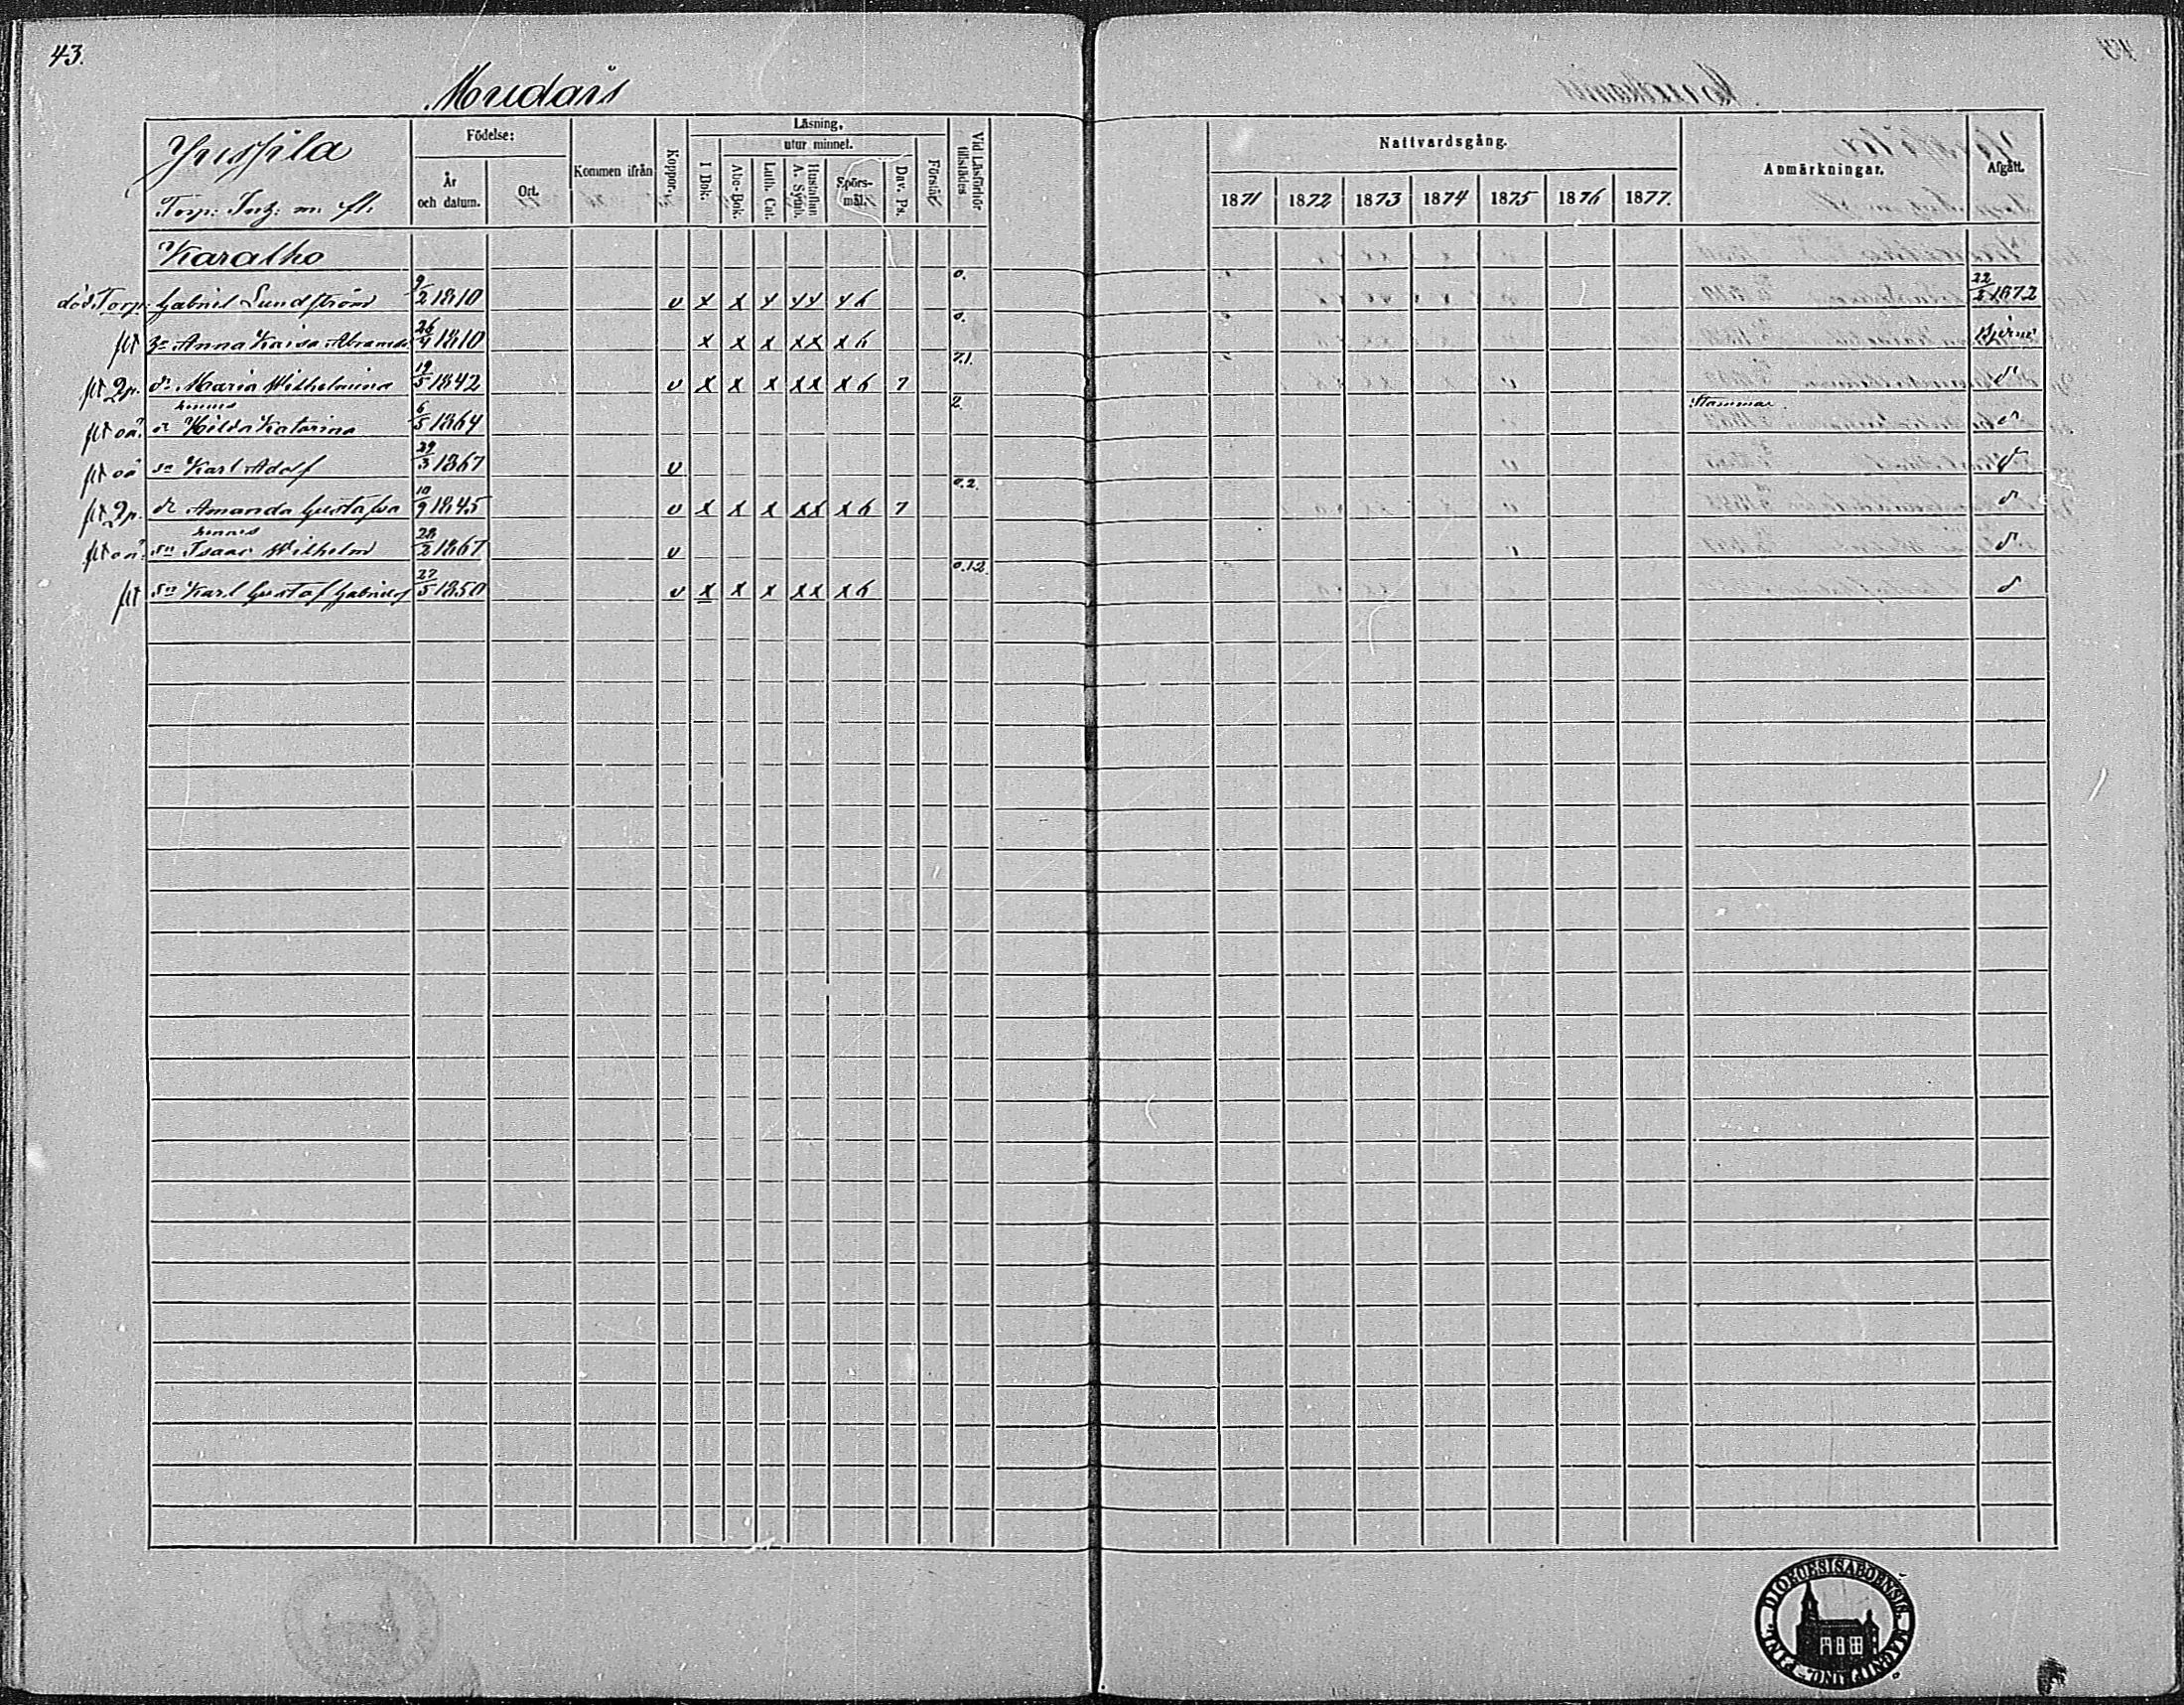 43.
Mudais
Yrisfila
Torp: Inh: m. fl.
Födelse:
År och datum.
Ort.
Kommen ifrån
Koppor.
Läsning.
I Bok.
utur minnet.
Abc-Bok.
Luth. Cat.
Hustaflan A. Symb.
Spörsmål.
Dav. Ps.
Förstår
Vid Läsförhör tillstädes
Nattvardsgång.
1871 1872 1873 1874 1875 1876 1877.
Anmärkningar.
Afgått.
Karalho
död. Torp: Gabriel Lundström 9/2 1810 v x x x xx x 6 0. 22/2 1872
flt Anna Kaisa Abramsd. 26/4 1810 x x x xx x 6 0.
flt 2p. dr Maria Wilhelmina 19/5 1842 v x x x xx x 6 7 7.1. d
hennes
flt oä. dr Hilda Katarina 6/5 1864 2. Stammar. d
flt oä sn Karl Adolf 29/3 1867 v d
flt 2p. dr Amanda Gustafva 10/9 1845 v x x x xx x 6 7 0.2. d
hennes
flt oä. sn Isaac Wilhelm 28/2 1867 v d
flt sn Karl Gustaf Gabriel 27/5 1850 v x x x xx x 6 0.12. d
DIOECESIS ABOENSIS. MAGNI DUC. FINL.